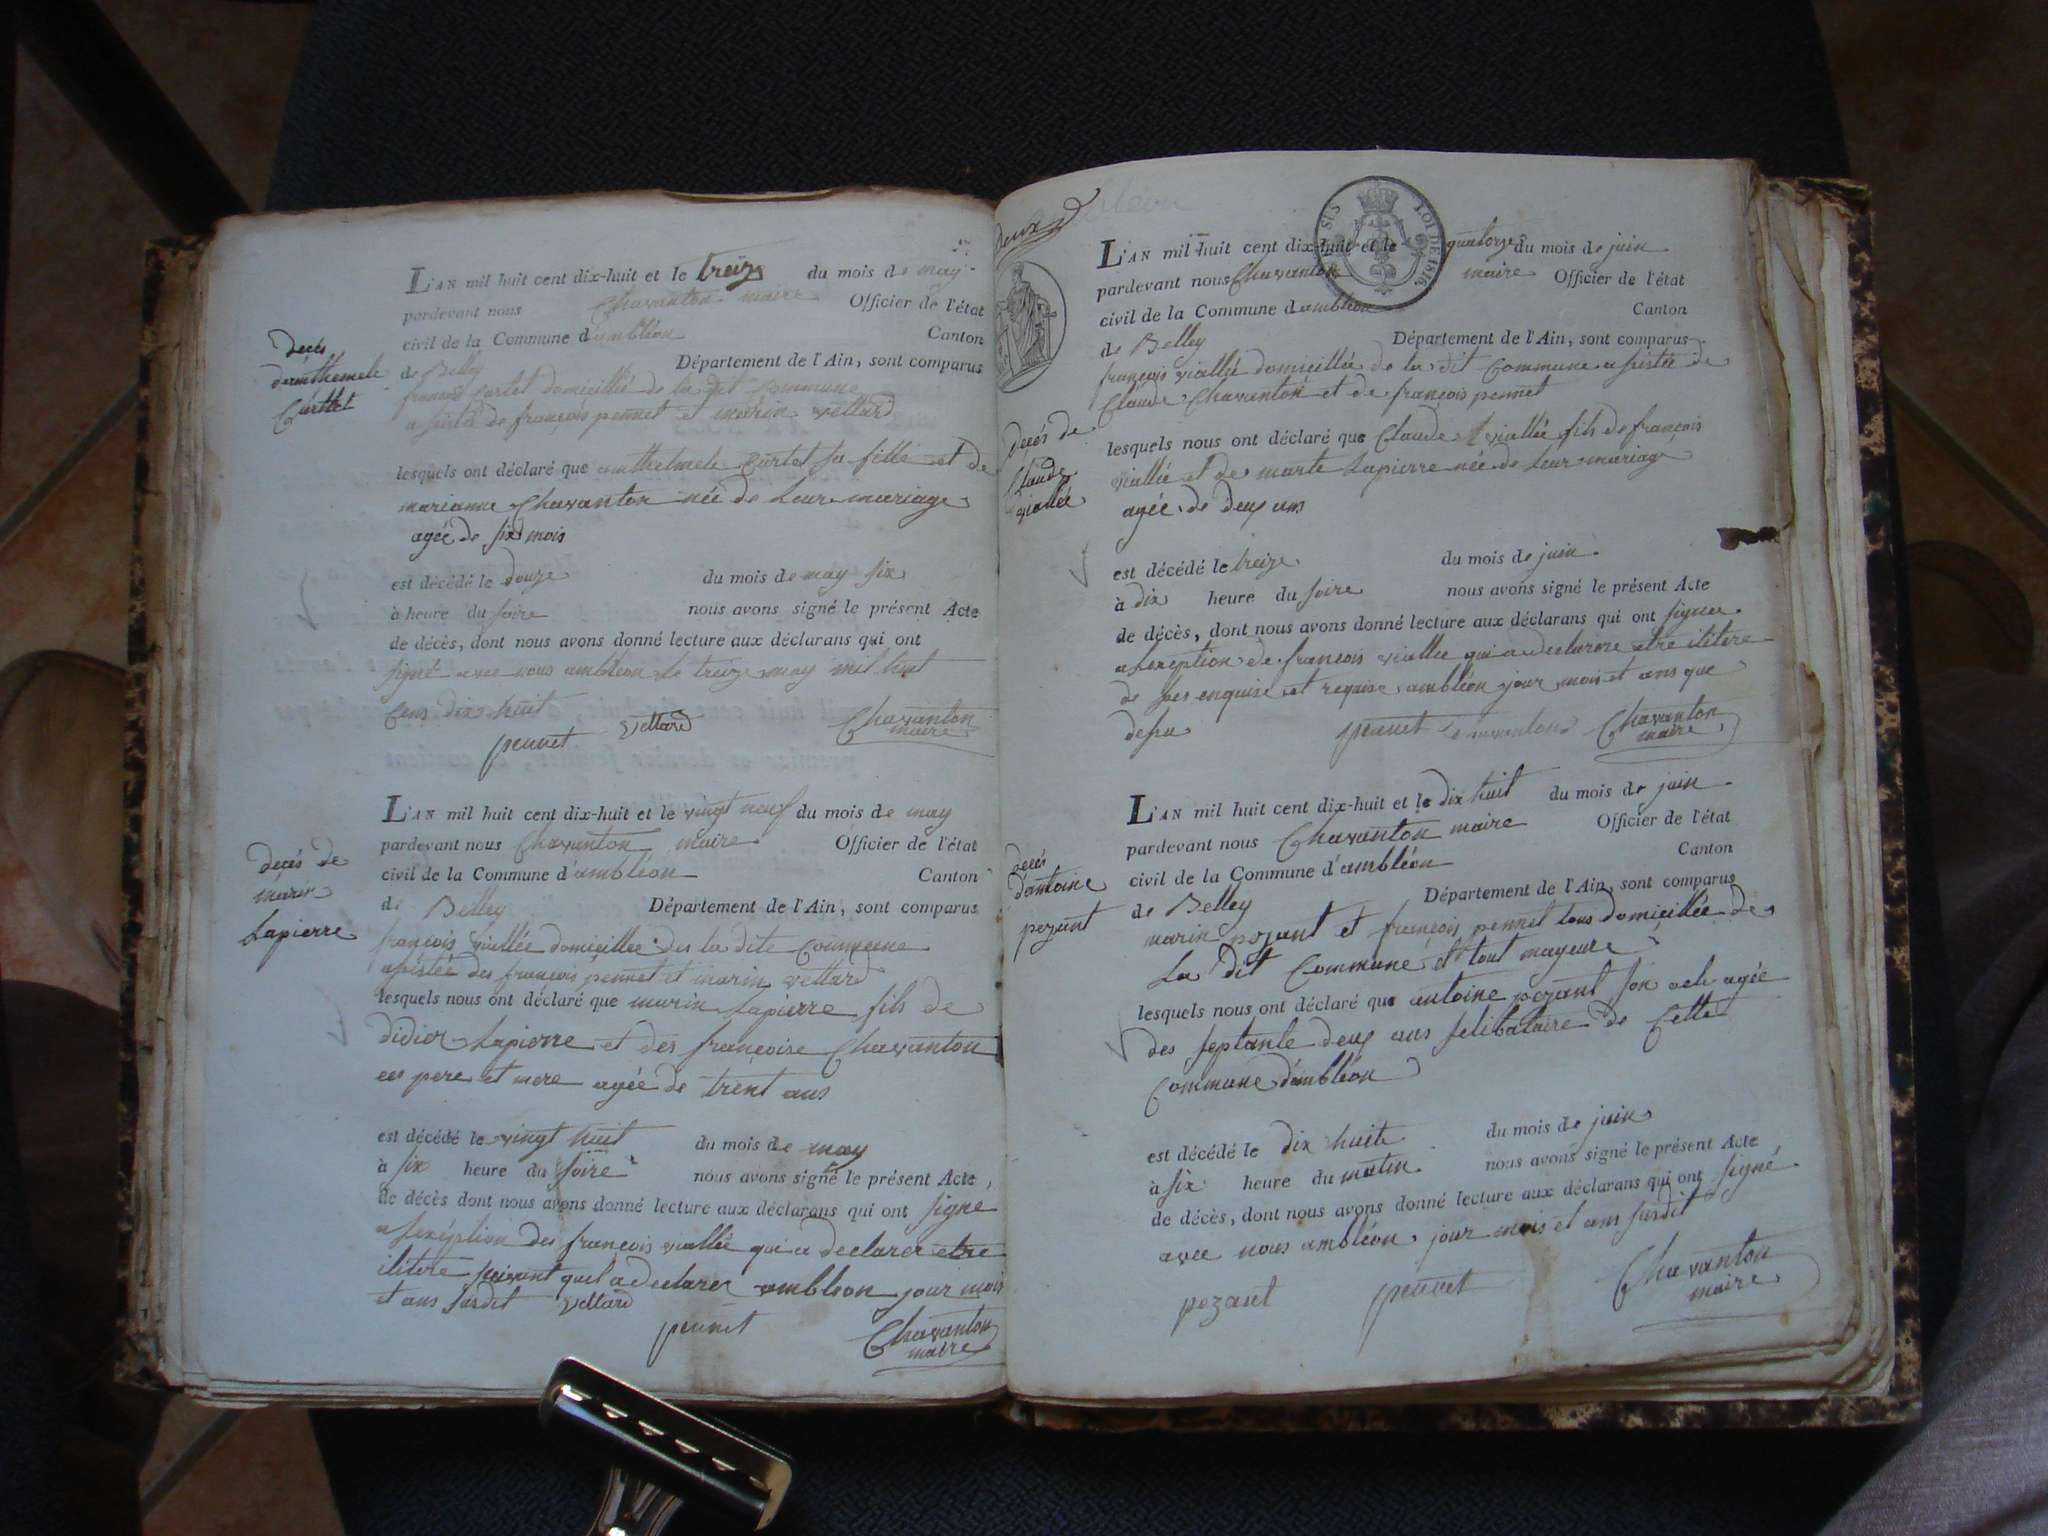 decés
danthemele
Curtet
L'AN mil huit cent dix-huit et le treize du mois de may
pardevant nous Chavanton maire Officier de l'état
civil de la Commune d'ambléon Canton
de Belley Département de l'Ain, sont comparus
françois Curtet domicillié de la dit Commune
assisté de françois pennet et marin vettard
lesquels ont déclaré que anthelmele Curtet sa fille et de
marianne Chavanton née de leur mariage
agée de six mois
est décédé le douze du mois de may six
à heure du soire nous avons signé le présent Acte
de décès, dont nous avons donné lecture aux déclarans qui ont
signé avec nous ambléon le treize may mil huit
cens dix huit
pennet vettard Chavanton
maire
decés de
marin
Lapierre
L'AN mil huit cent dix-huit et le vingt neuf du mois de may
pardevant nous Chavanton maire Officier de l'état
civil de la Commune d'ambléon Canton
de Belley Département de l'Ain, sont comparus
françois viallée domicillée des la dite Commune
assistée des françois pennet et marin vettard
lesquels nous ont déclaré que marin Lapierre fils de
didier Lapierre et des françoise Chavanton
ces pere et mere agée de trent ans
est décédé le vingt huit du mois de may
à six heure du soire nous avons signé le présent Acte,
de décès dont nous avons donné lecture aux déclarans qui ont signe
a lexéption des françois viallée qui a declarer etre
ilitere suivant quel a declarer ambleon jour mois
et ans susdit vettard
pennet Chavanton
maire
deux
SIS LOI DE 1816.
L'AN mil huit cent dix-huit et le quatorze du mois de juin
pardevant nous Chavanton maire Officier de l'état
civil de la Commune d'ambléon Canton
de Belley Département de l'Ain, sont comparus
françois viallée domicillée de la dit Commune assistée de
Claude Chavanton et de françois pennet
decés de
Claude
viallée
lesquels nous ont déclaré que Claude viallée fils de françois
viallée et de marte Lapierre née de leur mariage
agée de deux ans
est décédé le treize du mois de juin
à dix heure du soire nous avons signé le présent Acte
de décès, dont nous avons donné lecture aux déclarans qui ont signee
a lexeption de françois viallee qui a declarere etre ilitere
de ses enquise et requise ambléon jour mois et ans que
desu pennet Chavanton Chavanton
maire
decés
dantoine
pezant
L'AN mil huit cent dix-huit et le dix huit du mois de juin
pardevant nous Chavanton maire Officier de l'état
civil de la Commune d'ambléon Canton
de Belley Département de l'Ain, sont comparus
marin pezant et françois pennet tous domicillée de
La dit Commune et tout mayeure
lesquels nous ont déclaré que antoine pezant son agée
des septante deux ans selibataire de Cette
Commune d'ambléon
est décédé le dix huite du mois de juin
à six heure du matin nous avons signé le présent Acte
de décès, dont nous avons donné lecture aux déclarans qui ont signé
avec nous ambléon, jour mois et ans susdit
pezant pennet Chavanton
maire